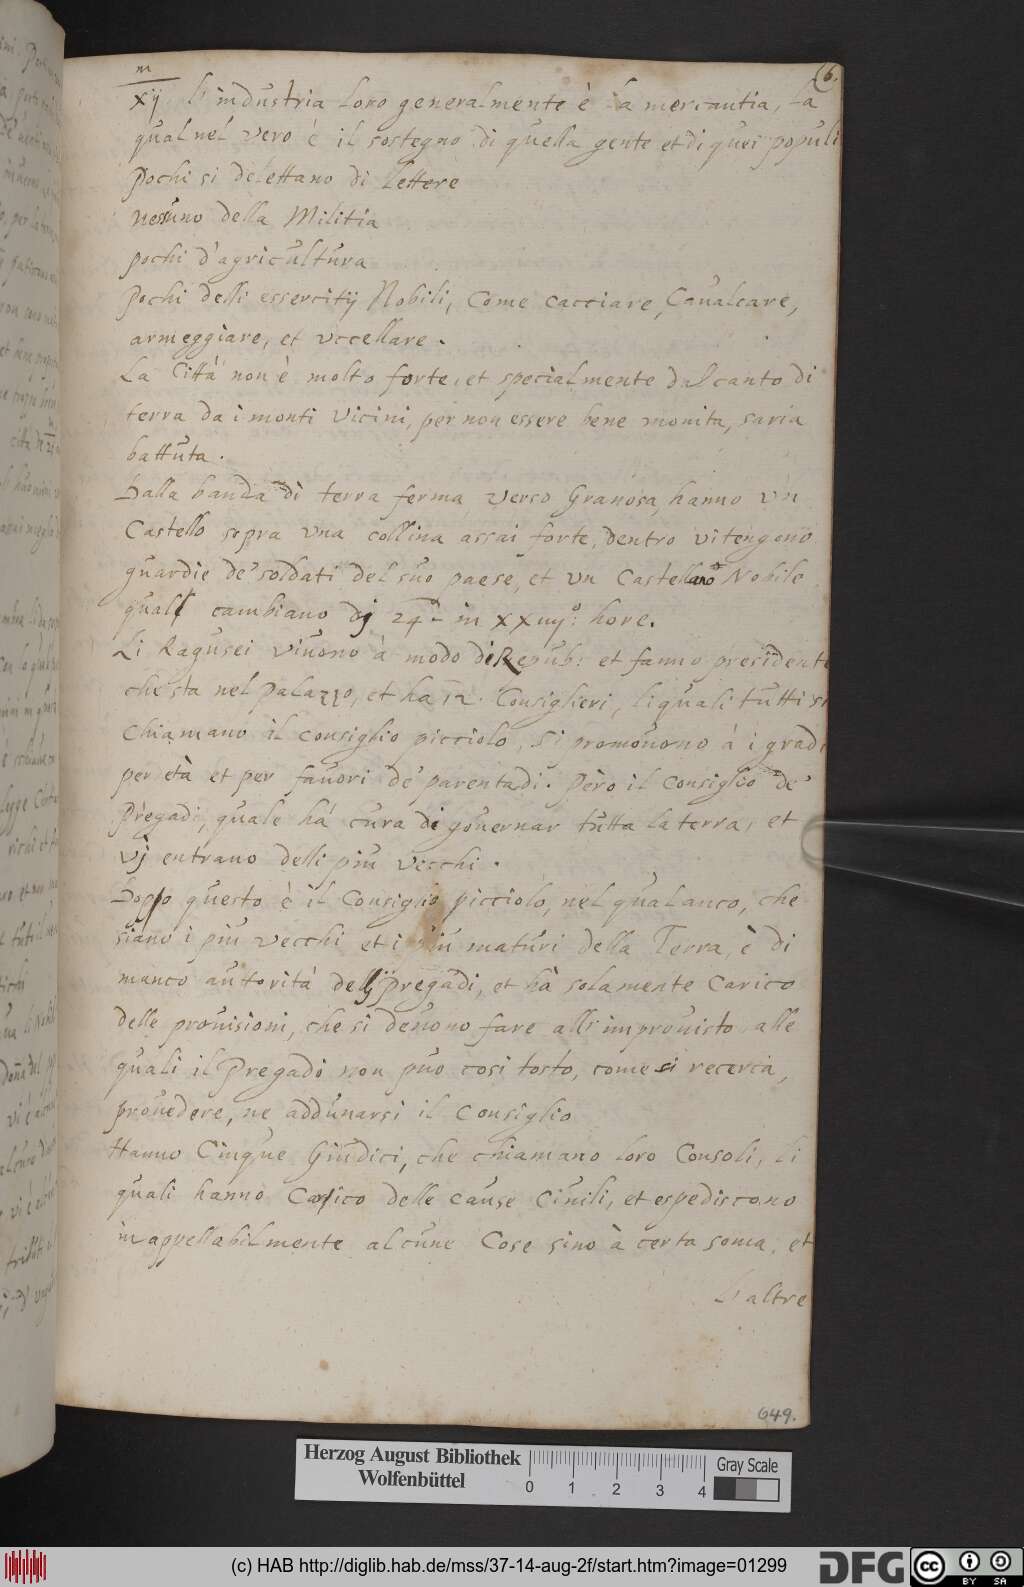 m
xij L'industria loro generalmente è la mercantia, la
6.
qual nel vero è il sostegno di quella gente et di quei populi
Pochi si delettano di lettere
nessuno della Militia
pochi d'agricultura
Pochi delli essercitij Nobili, Come cacciare, Caualcare,
armeggiare, et vccellare.
La Città non è molto forte, et specialmente dal canto di
terra da i monti vicini, per non essere bene monita, saria
battuta.
Dalla banda di terra ferma verso Granosa, hanno vn
Castello sopra vna collina assai forte, dentro vi tengono
guardie de' soldati del suo paese, et vn Castellano Nobile
quali cambiano dj 24 in xxiiij: hore.
Li Ragusei viuono à modo di Repub: et fanno presidente
che sta nel palazzo, et ha 12. Consiglieri, li quali tutti si
chiamano il consiglio picciolo, si promouono à i gradi
per età et per fauori de' parentadi. Però il Consiglio de'
Pregadi, quale hà cura di gouernar tutta la terra, et
vj entrano delli piu vecchi.
Doppo questo è il Consiglio picciolo, nel qual anco, che
siano i piu vecchi et i piu maturi della Terra, è di
manco autorità delij pregadi, et hà solamente carico
delle prouisioni, che si deuono fare all'improuisto alle
quali il Pregadi non può così tosto, come si recerca,
prouedere, ne addunarsi il Consiglio
Hanno Cinque Giudici, che chiamano loro Consoli, li
quali hanno Carico delle cause Ciuili, et espediscono
inappellabilmente alcune Cose sino à certa soma, et
L'altre
649.
Herzog August Bibliothek
Wolfenbüttel
0 1 2 3 4
Gray Scale
(c) HAB http://diglib.hab.de/mss/37-14-aug-2f/start.htm?image=01299
DFG
cc
BY SA